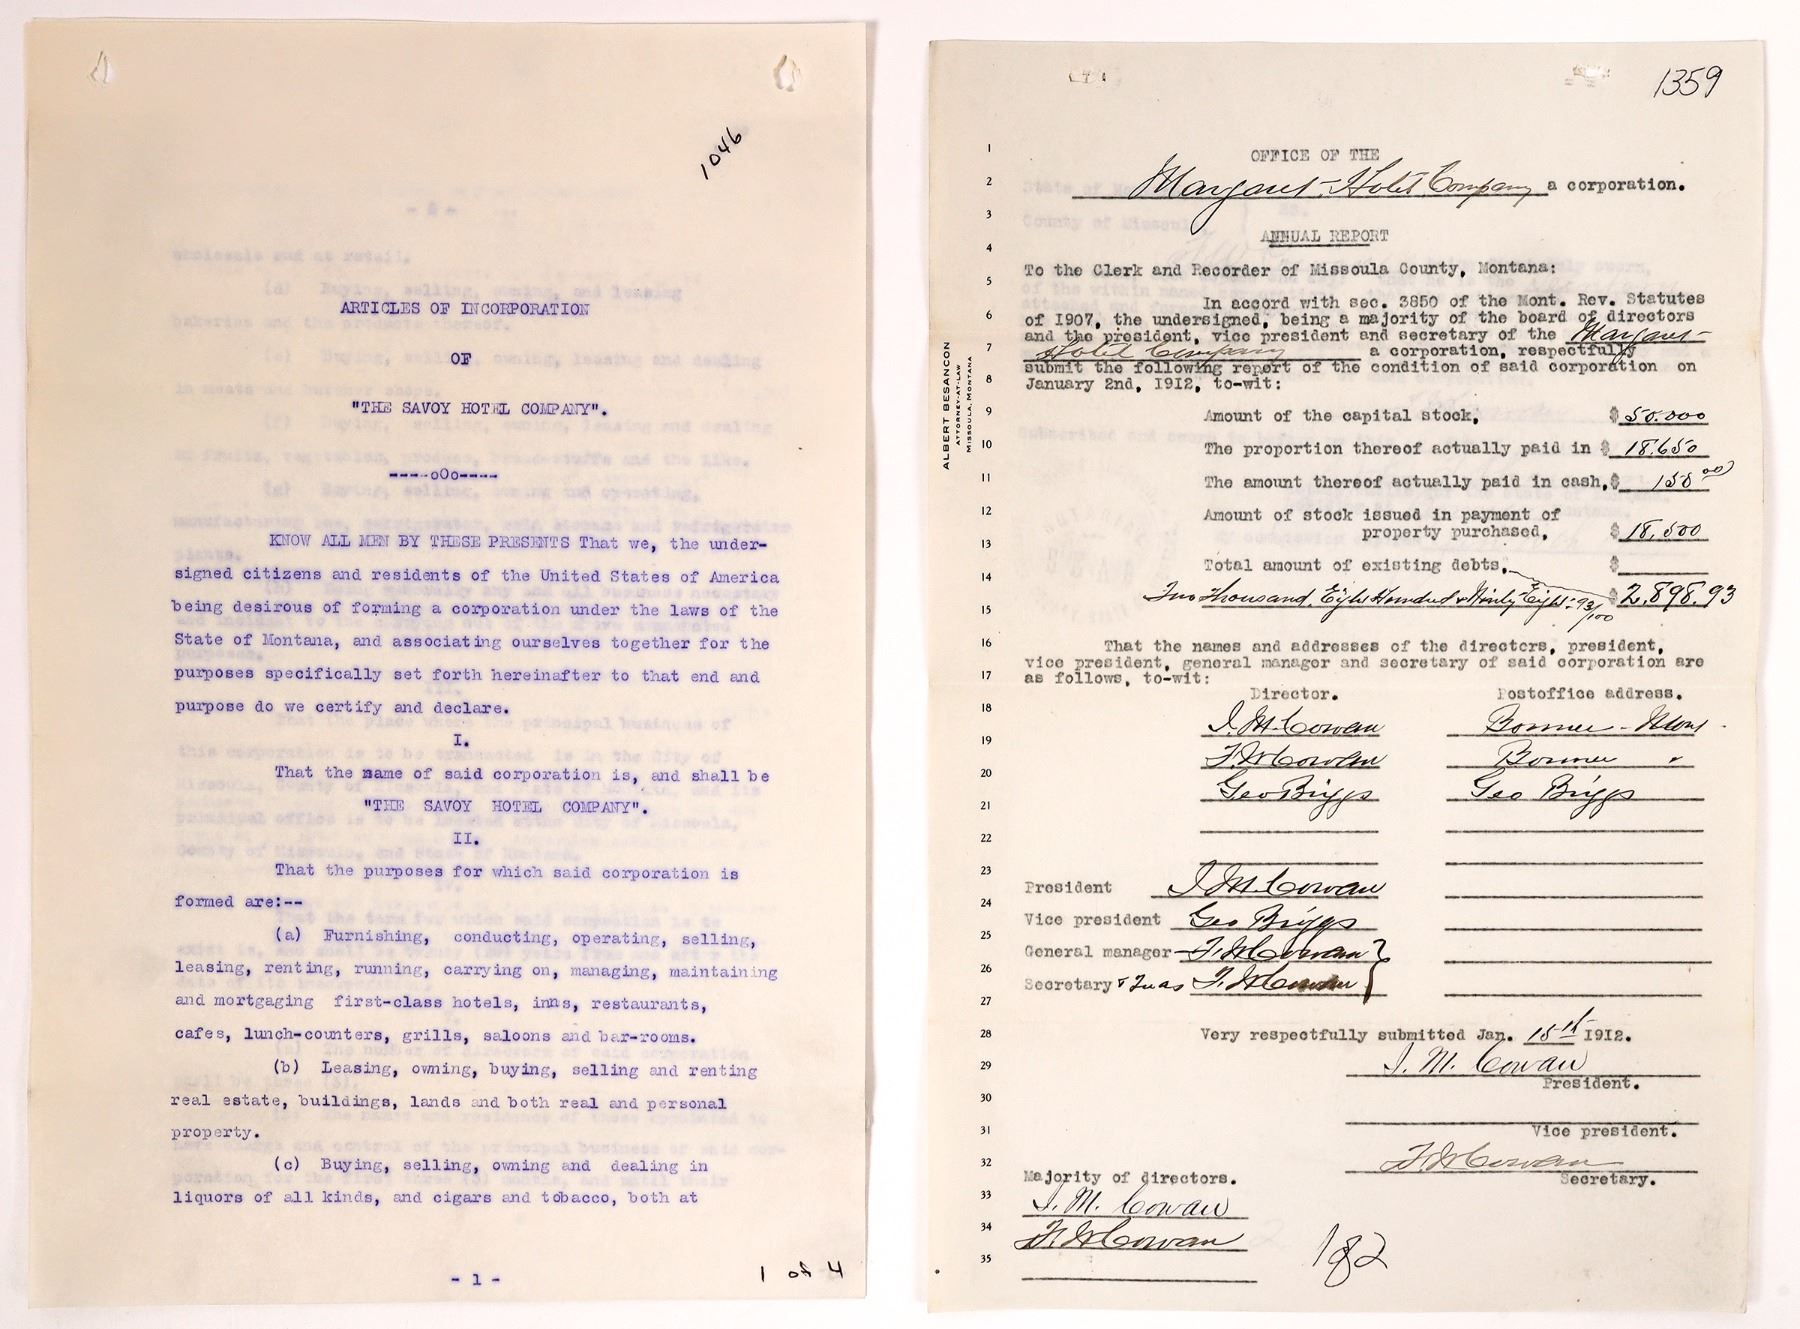 1046
ARTICLES OF INCORPORATION
OF
"THE SAVOY HOTEL COMPANY".
----oOo----
KNOW ALL MEN BY THESE PRESENTS That we, the under-
signed citizens and residents of the United States of America
being desirous of forming a corporation under the laws of the
State of Montana, and associating ourselves together for the
purposes specifically set forth hereinafter to that end and
purpose do we certify and declare.
I.
That the name of said corporation is, and shall be
"THE SAVOY HOTEL COMPANY".
II.
That the purposes for which said corporation is
formed are:--
(a) Furnishing, conducting, operating, selling,
leasing, renting, running, carrying on, managing, maintaining
and mortgaging first-class hotels, inns, restaurants,
cafes, lunch-counters, grills, saloons and bar-rooms.
(b) Leasing, owning, buying, selling and renting
real estate, buildings, lands and both real and personal
property.
(c) Buying, selling, owning and dealing in
liquors of all kinds, and cigars and tobacco, both at
- 1 -
1 of 4
1359
ALBERT BESANCON
ATTORNEY-AT-LAW
MISSOULA, MONTANA
1
2
3
4
5
6
7
8
9
10
11
12
13
14
15
16
17
18
19
20
21
22
23
24
25
26
27
28
29
30
31
32
33
34
35
OFFICE OF THE
Margaret Hotel Company a corporation.
ANNUAL REPORT
To the Clerk and Recorder of Missoula County, Montana:
In accord with sec. 3850 of the Mont. Rev. Statutes
of 1907, the undersigned, being a majority of the board of directors
and the president, vice president and secretary of the Margaret
Hotel Company a corporation, respectfully
submit the following report of the condition of said corporation on
January 2nd, 1912, to-wit:
Amount of the capital stock, $ 50.000
The proportion thereof actually paid in $ 18.650
The amount thereof actually paid in cash, $ 150 00
Amount of stock issued in payment of
property purchased, $ 18,500
Total amount of existing debts, $
Two Thousand, Eight Hundred & Ninty Eight - 93/100 $ 2.898.93
That the names and addresses of the directors, president,
vice president, general manager and secretary of said corporation are
as follows, to-wit:
Director. Postoffice address.
I. M. Cowan Bonner - Mont
F. M Cowan Bonner "
Geo Briggs Geo Briggs
President I. M. Cowan
Vice president Geo Briggs
General manager F. M Cowan
Secretary & Treas F. M Cowan
Very respectfully submitted Jan. 15th 1912.
I. M. Cowan
President.
Vice president.
F. M Cowan
Secretary.
Majority of directors.
I. M. Cowan
F. M Cowan
1 of 2